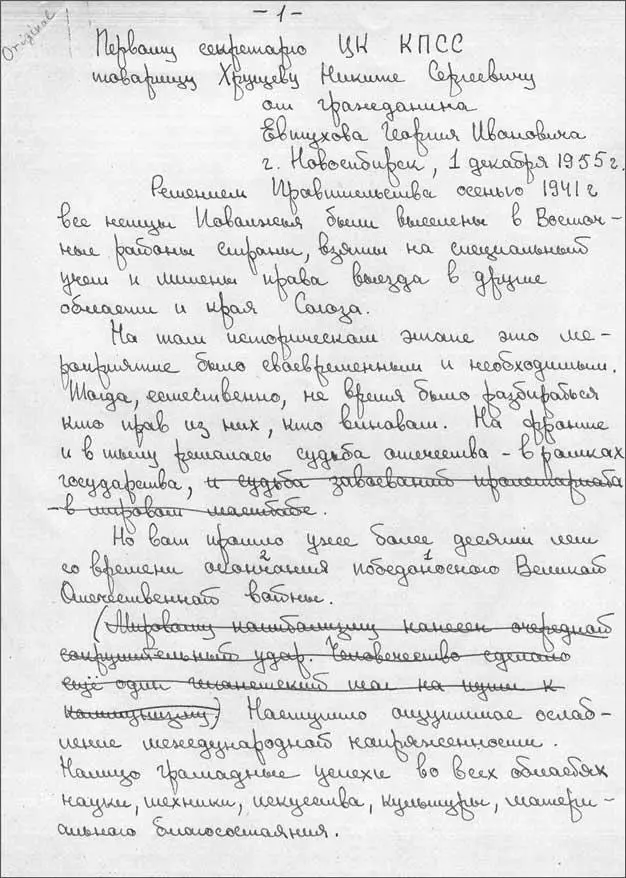 Original
– 1 –
Первому секретарю ЦК КПСС
товарищу Хрущеву Никите Сергеевичу
от гражданина
Евтухова Георгия Ивановича
г. Новосибирск, 1 декабря 1955 г.
Решением Правительства осенью 1941 г
все немцы Поволжья были выселены в Восточ-
ные районы страны, взяты на специальный
учет и лишены права выезда в другие
области и края Союза.
На том историческом этапе это ме-
роприятие было своевременным и необходимым.
Тогда, естественно, не время было разбираться
кто прав из них, кто виноват. На фронте
и в тылу решалась судьба отечества - в рамках
государства, и судьба завоеваний пролетариата
- в мировом масштабе.
Но вот прошло уже более десяти лет
со времени окончания 2 победоносного 1 Великой
Отечественной войны.
(Мировому капитализму нанесен очередной
сокрушительный удар. Человечество сделало
ещё один гигантский шаг на пути к
коммунизму.) Наступило ощутимое ослаб-
ление международной напряженности.
Налицо громадные успехи во всех областях
науки, техники, искусства, культуры, матери-
ального благосостояния.